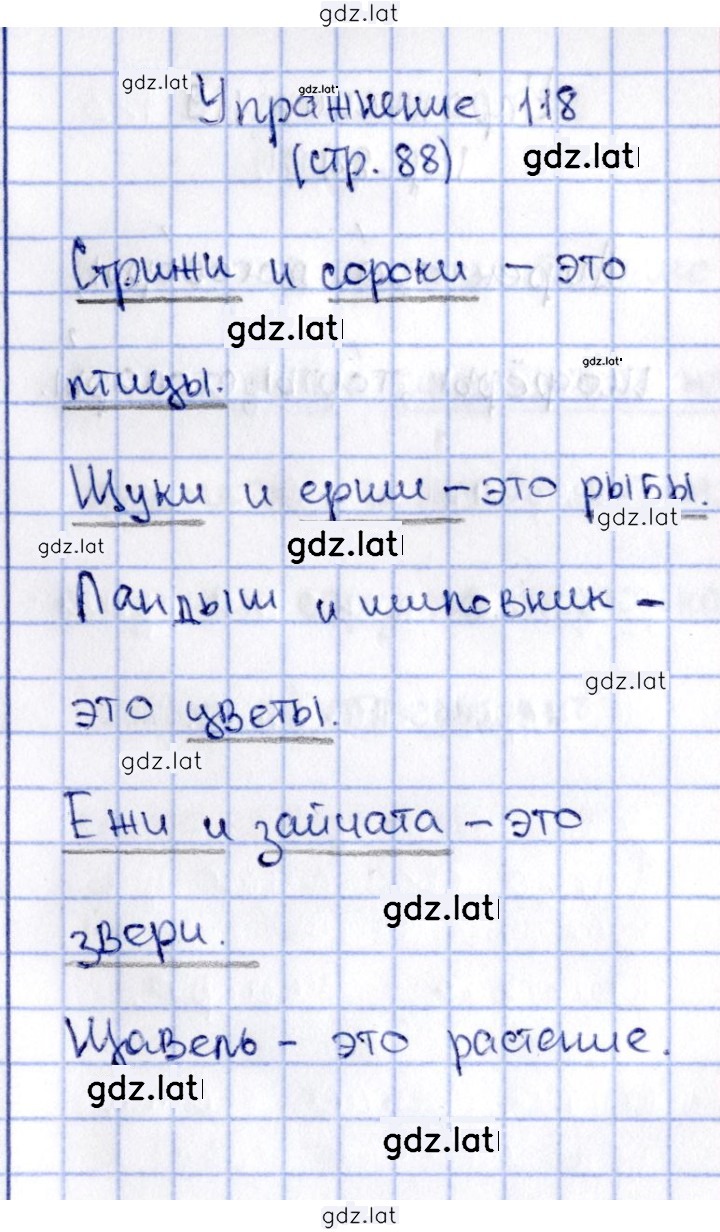 gdz.lat
gdz.lat
gdz.lat
Упражнение 118
(стр. 88)
gdz.lat
Стрижи и сороки – это
gdz.lat
gdz.lat
птицы.
Щуки и ерши – это рыбы.
gdz.lat
gdz.lat
gdz.lat
Ландыш и шиповник –
gdz.lat
это цветы.
gdz.lat
Ежи и зайчата – это
gdz.lat
звери.
Щавель – это растение.
gdz.lat
gdz.lat
gdz.lat